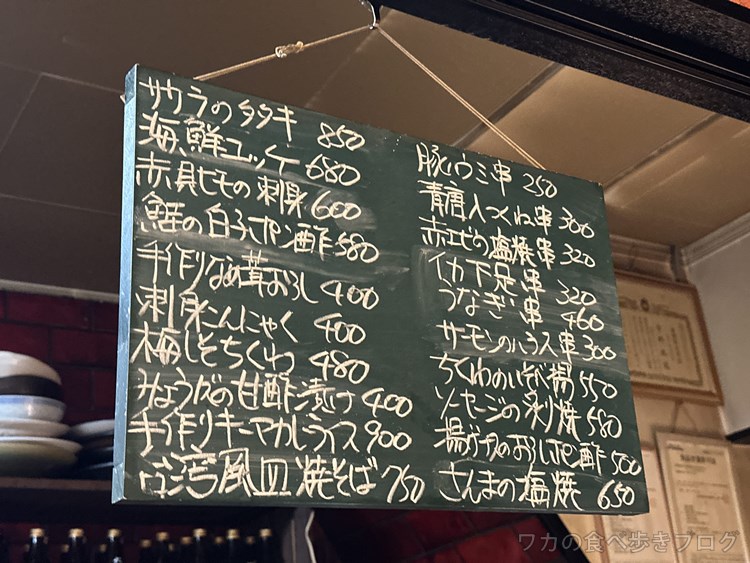 サワラのタタキ 850
海鮮ユッケ 680
赤貝ヒモの刺身 600
鱈の白子ポン酢 580
手作りなめ茸おろし 400
刺身こんにゃく 400
梅しそちくわ 480
みょうがの甘酢漬け 400
手作りキーマカレーライス 900
台湾風皿焼そば 750
豚ハラミ串 250
青唐入つくね串 300
赤エビの塩焼串 320
イカ下足串 320
うなぎ串 460
サーモンのハラス串 300
ちくわのいそべ揚 550
ソーセージの釗焼 580
揚げナスのおろしポン酢 500
さんまの塩焼 650
ワカの食べ歩きブログ